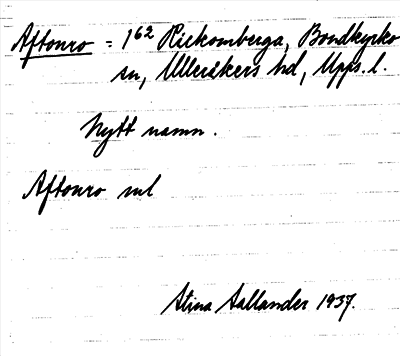 Aftonro = 1⁶² Rickomberga, Bondkyrko
sn, Ulleråkers hd, Upps. l.
Nytt namn.
Aftonro ml
Stina Sallander 1937.